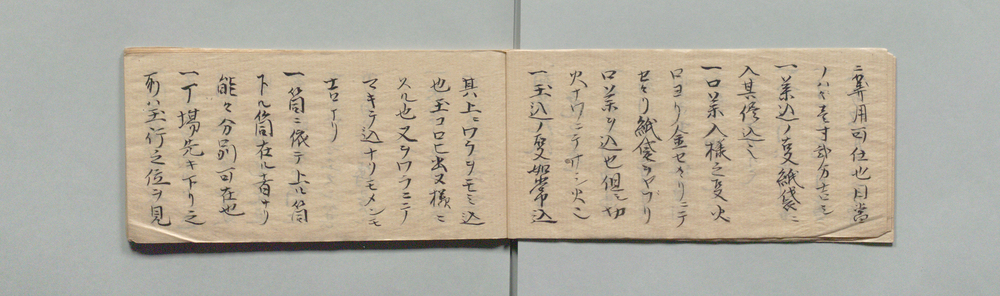 ニ算用可仕也目當
ノハヾキ寸弐分吉シ
一薬込ノ叓紙袋ニ
入其侭込ミ
一口薬入様之叓火
口ヨリ金セヽリニテ
セヽリ紙袋ヲヤフリ
口薬ヲ込也但シ切
火ナワニテサシ火シ
一玉込ノ叓如常込
其上ニワラヲモミ込
也玉コロヒ出ヌ様ニ
スル也又ヲワラミニテ
マキテ込ナリモメンモ
吉ナリ
一筒ニ依テ上ル筒
下ル筒在ル者ナリ
能々分別可在也
一丁場先キ下リ之
所ハ玉行之位ヲ見